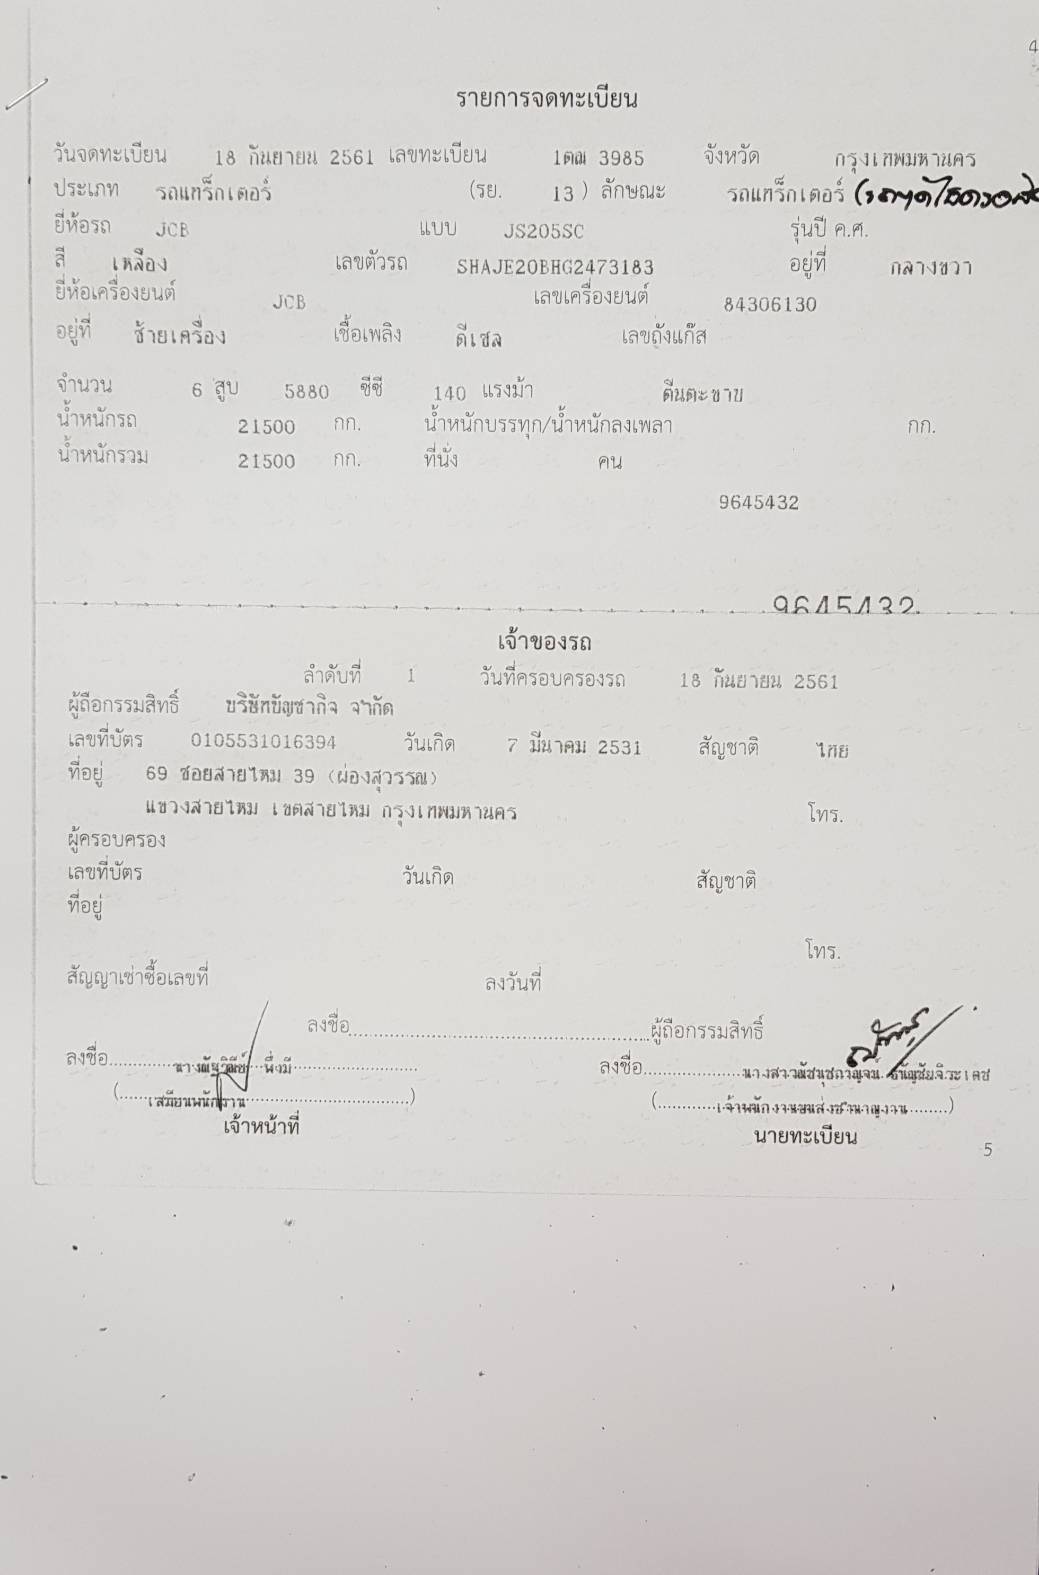 4
รายการจดทะเบียน
วันจดทะเบียน 18 กันยายน 2561 เลขทะเบียน 1ตฌ 3985 จังหวัด กรุงเทพมหานคร
ประเภท รถแทร็กเตอร์ (รย. 13 ) ลักษณะ รถแทร็กเตอร์
ยี่ห้อรถ JCB แบบ JS205SC รุ่นปี ค.ศ.
สี เหลือง เลขตัวรถ SHAJE20BHG2473183 อยู่ที่ กลางขวา
ยี่ห้อเครื่องยนต์ JCB เลขเครื่องยนต์ 84306130
อยู่ที่ ซ้ายเครื่อง เชื้อเพลิง ดีเซล เลขถังแก๊ส
จำนวน 6 สูบ 5880 ซีซี 140 แรงม้า ตีนตะขาบ
น้ำหนักรถ 21500 กก. น้ำหนักบรรทุก/น้ำหนักลงเพลา กก.
น้ำหนักรวม 21500 กก. ที่นั่ง คน
9645432
9645432
เจ้าของรถ
ลำดับที่ 1 วันที่ครอบครองรถ 18 กันยายน 2561
ผู้ถือกรรมสิทธิ์ บริษัทบัญชากิจ จำกัด
เลขที่บัตร 0105531016394 วันเกิด 7 มีนาคม 2531 สัญชาติ ไทย
ที่อยู่ 69 ซอยสายไหม 39 (ผ่องสุวรรณ)
แขวงสายไหม เขตสายไหม กรุงเทพมหานคร โทร.
ผู้ครอบครอง
เลขที่บัตร วันเกิด สัญชาติ
ที่อยู่
โทร.
สัญญาเช่าซื้อเลขที่ ลงวันที่
ลงชื่อ ผู้ถือกรรมสิทธิ์
ลงชื่อ ลงชื่อ
(เสมียนพนักงาน) (เจ้าพนักงานขนส่งชำนาญงาน)
เจ้าหน้าที่ นายทะเบียน
5